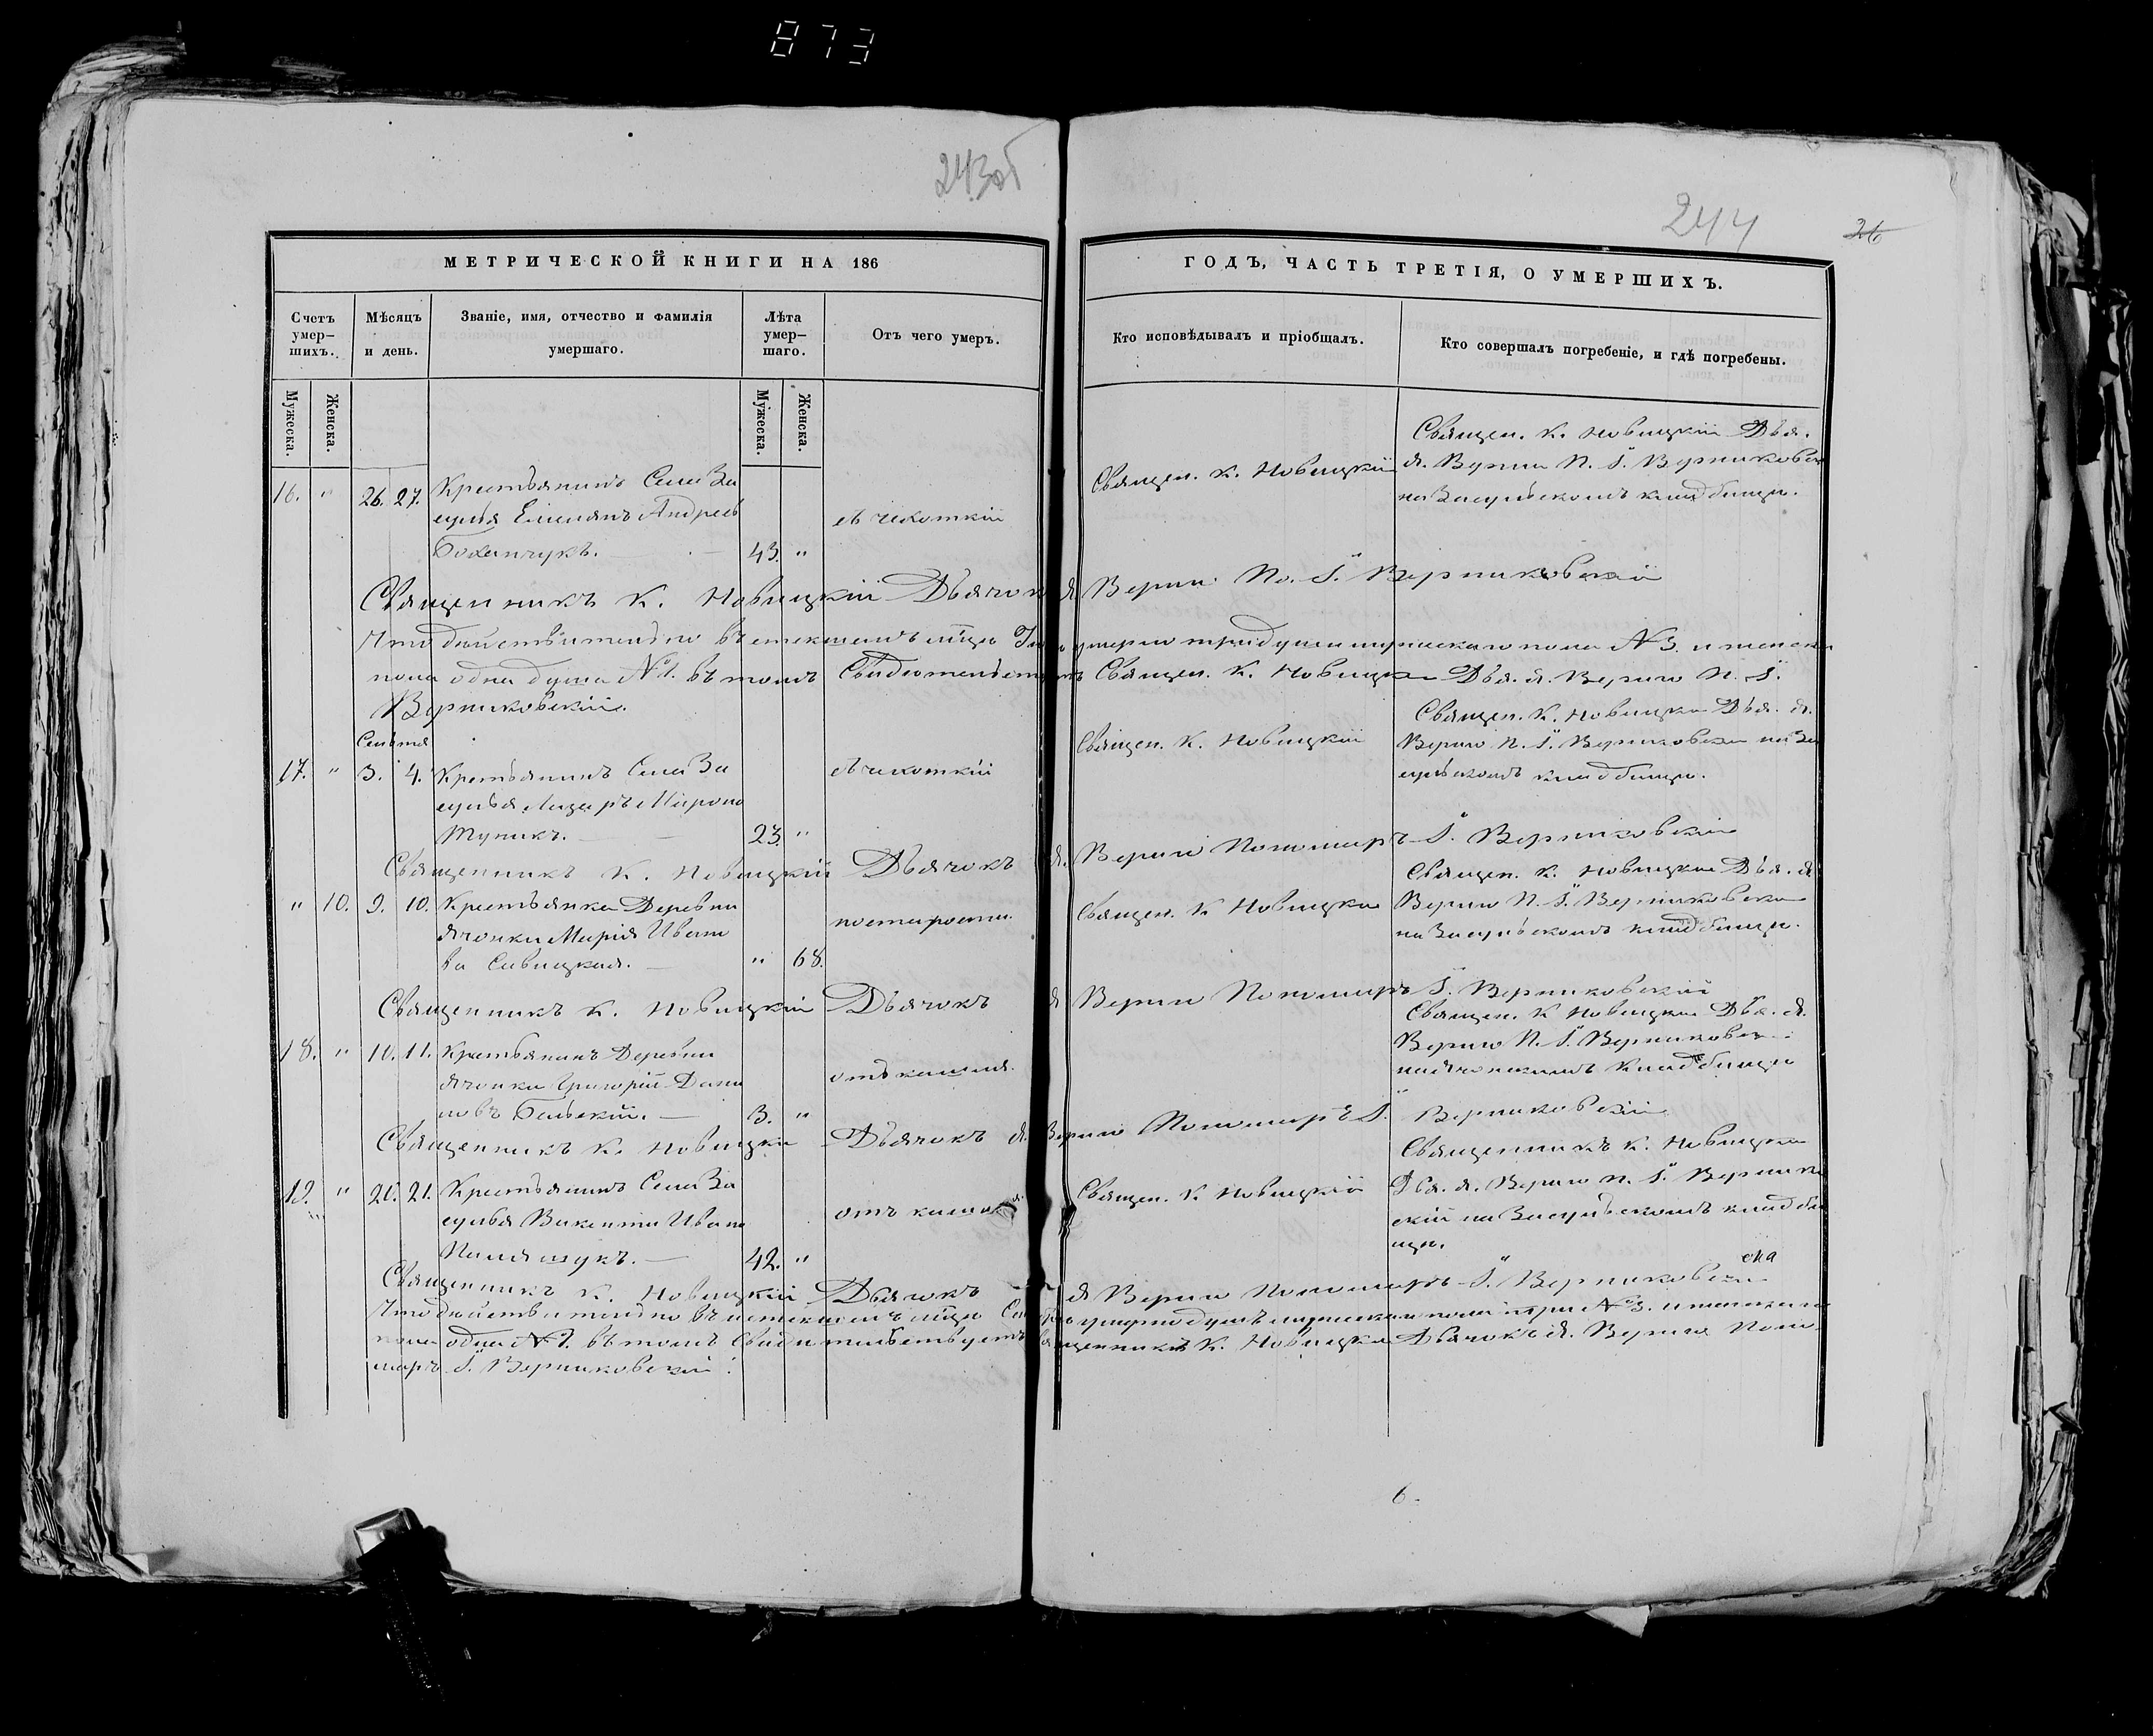 873
243об
244
26
МЕТРИЧЕСКОЙ КНИГИ НА 186
ГОДЪ, ЧАСТЬ ТРЕТІЯ, О УМЕРШИХЪ.
Счетъ умер-шихъ.
Мѣсяцъ и день.
Званіе, имя, отчество и фамилія умершаго.
Лѣта умер-шаго.
Отъ чего умеръ.
Кто исповѣдывалъ и пріобщалъ.
Кто совершалъ погребеніе, и гдѣ погребены.
Мужеска.
Женска.
Мужеска.
Женска.
16. " 26. 27. Крестьянинъ Села За
сулья Емельянъ Андреев
Боханчукъ. 43. "
чехоткій
Священ. К. Новицкій
Священ. К. Новицкій Дья.
Я. Верига П. І.
на Засульскомъ кладбищи.
Священникъ К. Новицкій Дьячокъ Я Верига По. І. Верниковскій
Что действительно въ истекшемъ мце умерло три души мужеска пола №3. и женска
пола одна душа №1. въ томъ Священ. К. Новицкій Дья. Я. Верига П. І.
Верниковскій.
17. " 3. 4. Крестьянинъ Села За
сулья Лазаръ Мироно
Тупикъ. 23. "
чехоткій
Священ. К. Новицкій
Священ. К. Новицкій Дья. Я.
Верига П. І. Верниковскій на За
сульскомъ кладбищи.
Священникъ К. Новицкій Дьячокъ Я. Верига Пономаръ І. Верниковскій
" 10. 9. 10. Крестьянка Деревни
Ячонки Марія Ивано
ва Савицкая. " 68.
по старости.
Священ. К Новицкій
Священ. К. Новицкій Дья. Я
Верига П. І. Верниковскій
на Засульскомъ кладбищи.
Священникъ К. Новицкій Дьячокъ Я Верига Пономаръ І. Верниковскій
18. " 10. 11. Крестьянинъ Деревни
Ячонки Григорій Дани
ловъ Бельскій. 3. "
отъ кашля.
Священ. К Новицкій Дья. Я.
Верига П. І.
кладбищи
Священникъ К. Новицкій Дьячокъ Я. Верига Пономаръ І. Верниковскій
19. " 20. 21. Крестьянинъ Села За
сулья Викентій Ивано
42. "
отъ кашля
Священ. К Новицкій
Священникъ К. Новицкій
Дья. Я. Верига П. І. Вернико
скій на Засульскомъ кладби
щи.
Священникъ К. Новицкій Дьячокъ Я Верига Пономаръ І. Верниковскій
Что действительно въ истекшемъ мце умерло душъ мужеска пола три №3. и женска
пола одна №1. въ томъ Свидетельствуетъ Священникъ К. Новицкій Дьячокъ Я. Верига Поно
маръ І. Верниковскій.
6.